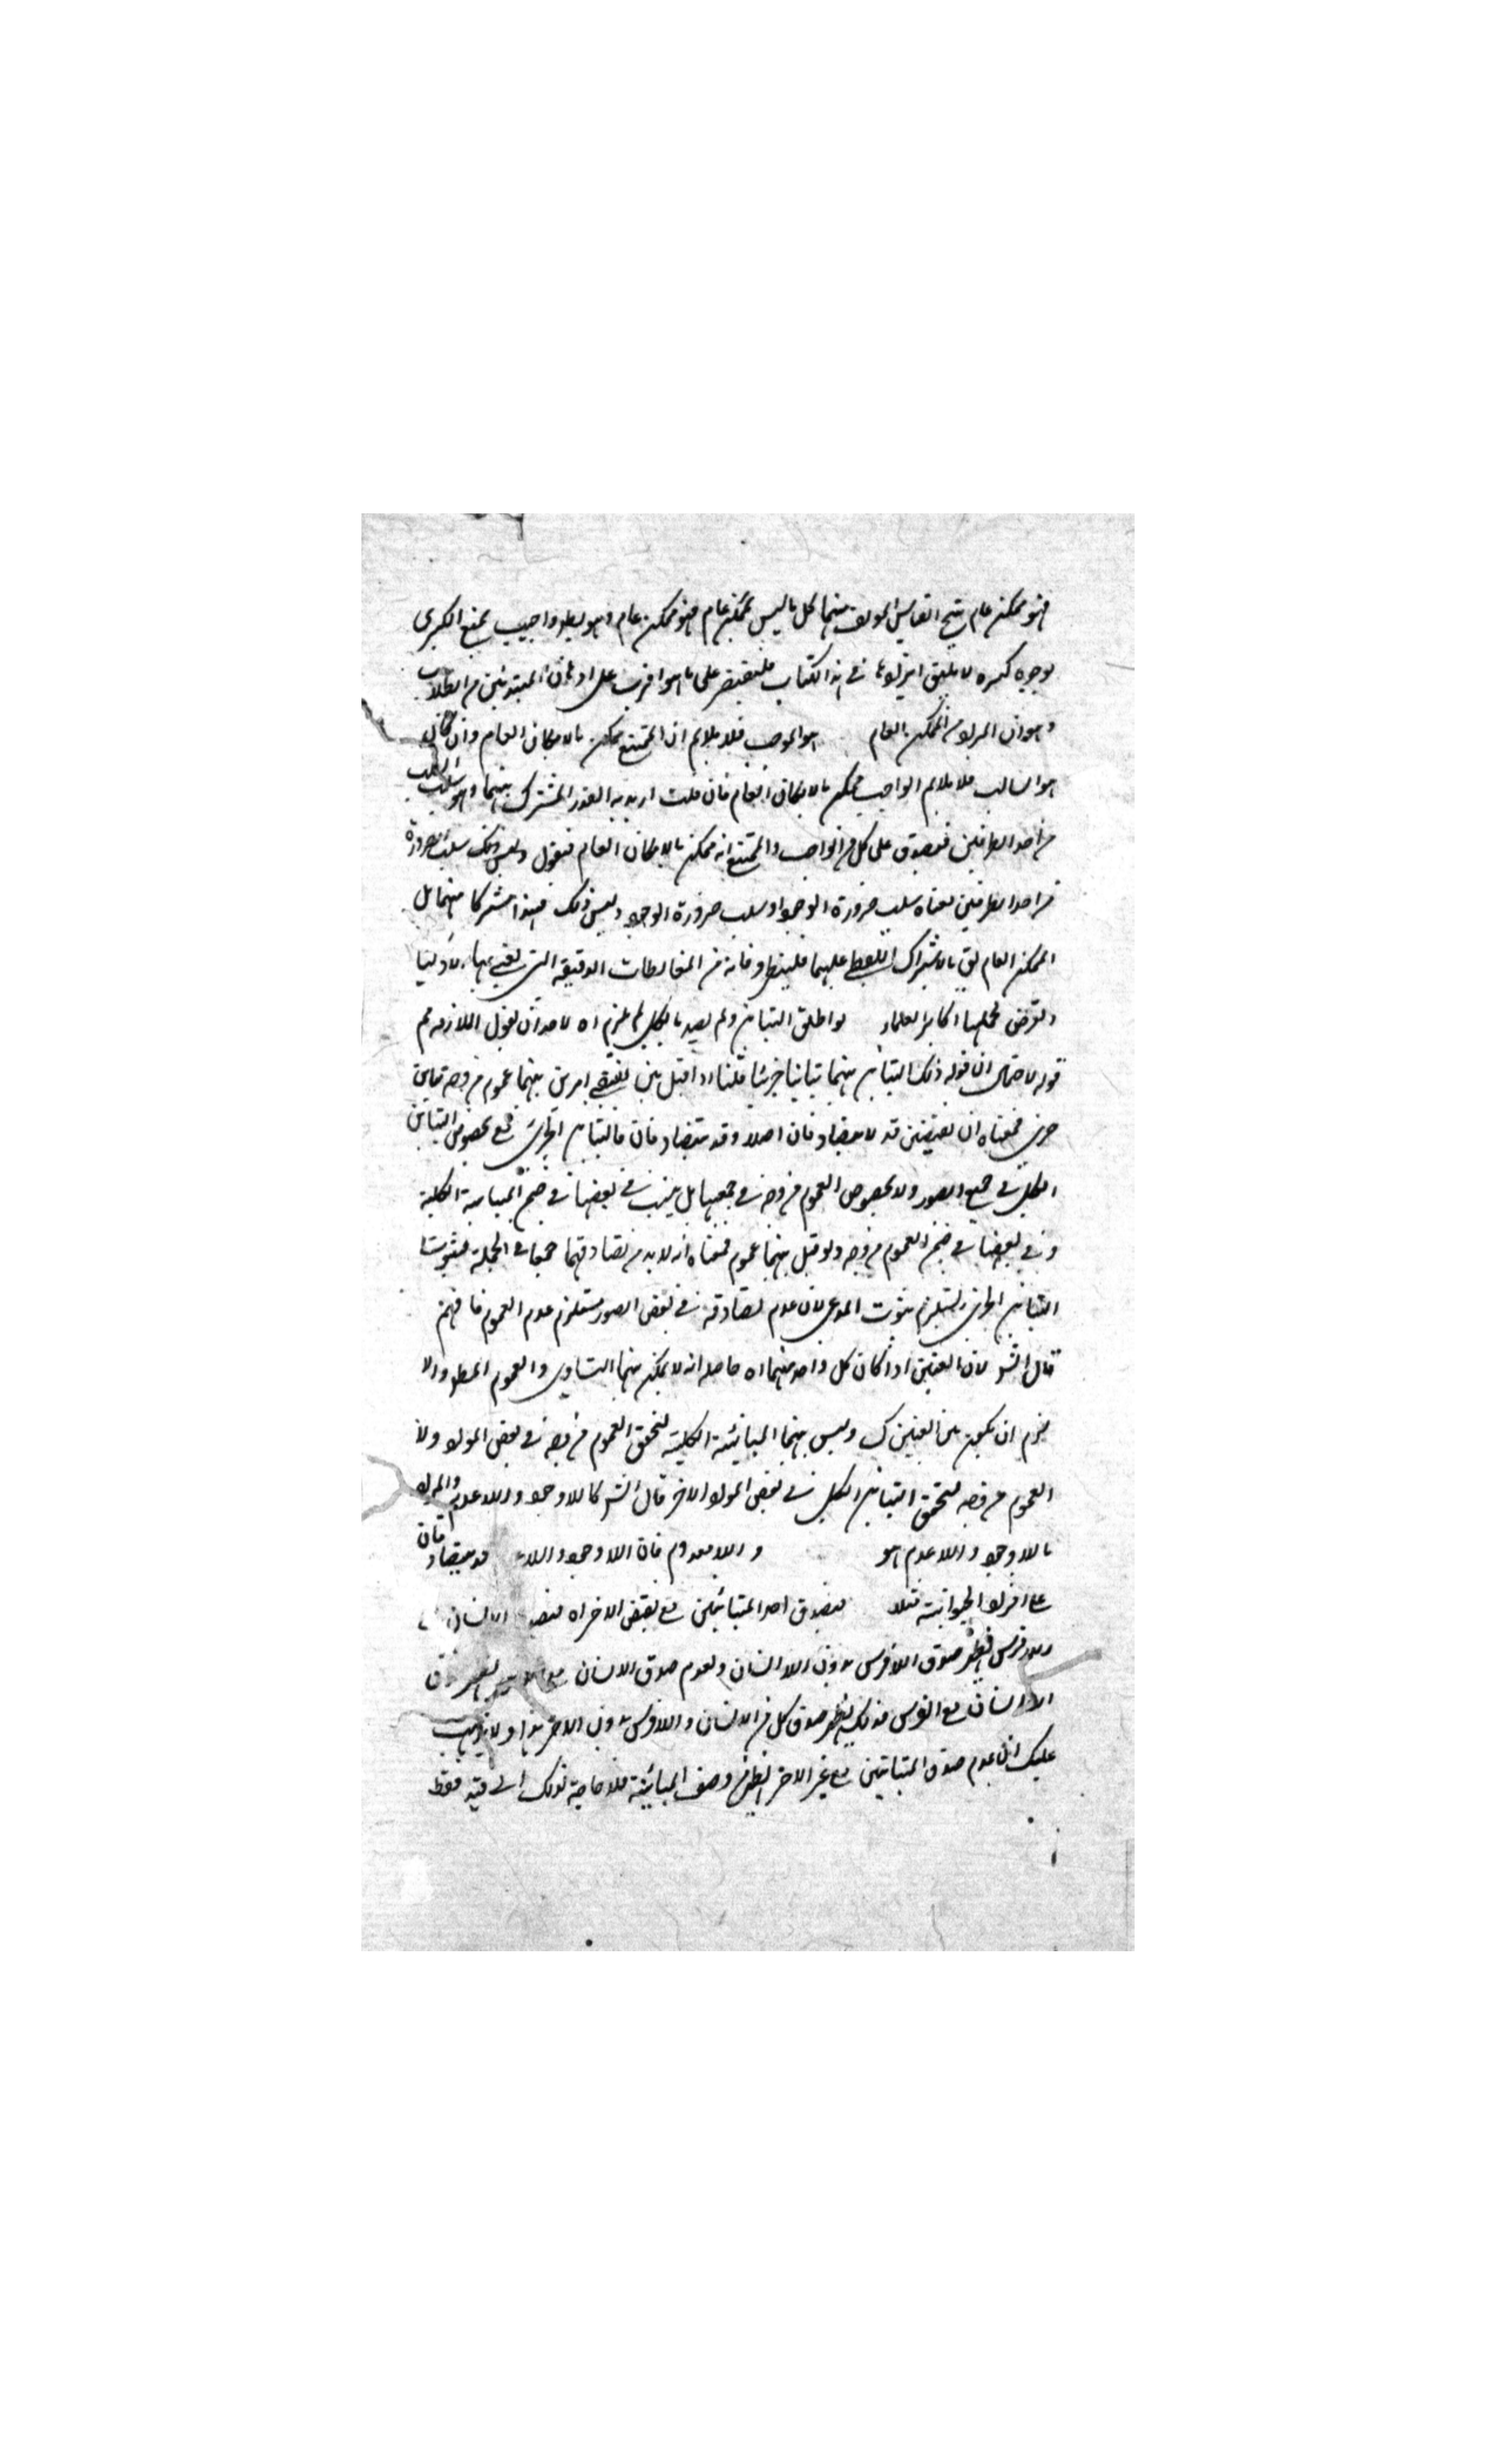 فهو ممكن عام ينتج القياس المولف منهما كل ما ليس بممكن عام فهو ممكن عام وهو بط واجيب بمنع الكبرى
بوجوه كثيره لا يليق ايرادها في هذا الكتاب فلنقتصر على ما هو اقرب على اذهان المبتدئين من الطلاب
وهو ان المراد من الممكن العام هو الموجب فلا يلايم ان الممتنع ممكن بالامكان العام وان كان
هو السالب فلا يلايم الواجب ممكن بالامكان العام فان قلت اريد به القدر المشترك بينهما وهو سلب
من احد الطرفين فيصدق على كل من الواجب والممتنع انه ممكن بالامكان العام فنقول وليس ذلك سلب الضرورة
من احد الطرفين معناه سلب ضرورة الوجود او سلب ضرورة الوجود وليس ذلك مشتركا منهما بل
الممكن العام بالاشتراك اللفظي عليهما فلينظر فانه من المغالطات الدقيقه التي
لحلها اكابر العلماء لو اطلق التباين ولم يقيد بالكلي لم يلزم اه لاحد ان يقول الملازمه مم
قوله لاحتمال ان قوله ذلك التباين بينهما تباينا جزئيا قلنا اذا قيل بين نقيضي امرين بينهما عموم من وجه تباين
جزئي فمعناه ان نقيضين قد لا يتصادقان اصلا وقد يتصادقان فالتباين الجزئي مع خصوص التباين
الكلي في جميع الصور ولا خصوص العموم من وجه في جميعها بل يثبت في بعضها في ضمن المباينة الكلية
وفي بعضها في ضمن العموم من وجه ولو قيل بينهما عموم فمعناه انه لا بد من تصادقهما جميعا في الجملة فثبوت
التباين الجزئي يستلزم ثبوت المدعى لان عدم تصادقه في بعض الصور مستلزم عدم العموم فافهم
قال الش لان النقيضين اذا كان كل واحد منهما اه حاصله انه لا يمكن بينهما التساوي والعموم المط والا
يلزم ان يكون بين العينين ك وليس بينهما المباينة الكلية لتحقق العموم من وجه في بعض المواد ولا
العموم من وجه لتحقق التباين الكلي في بعض المواد الاخر قال الش كاللاوجود واللاعدم والمراد
باللاوجود واللاعدم هو واللامعدوم فان اللاوجود قد يتصادقان
على افراد الحيوانية مثلا فيصدق احد المتباينين مع نقيض الاخر اه الانسان
صدق اللافرس بدون اللا انسان ولعدم صدق الانسان
اللا انسان مع الفرس فذلك يظهر صدق كل من اللا انسان واللافرس بدون الاخر هذا ولا يذهب
عليك ان عدم صدق المتباينين مع عين الاخر وصف المباينة فلا حاجة لذلك الى قيد فقط